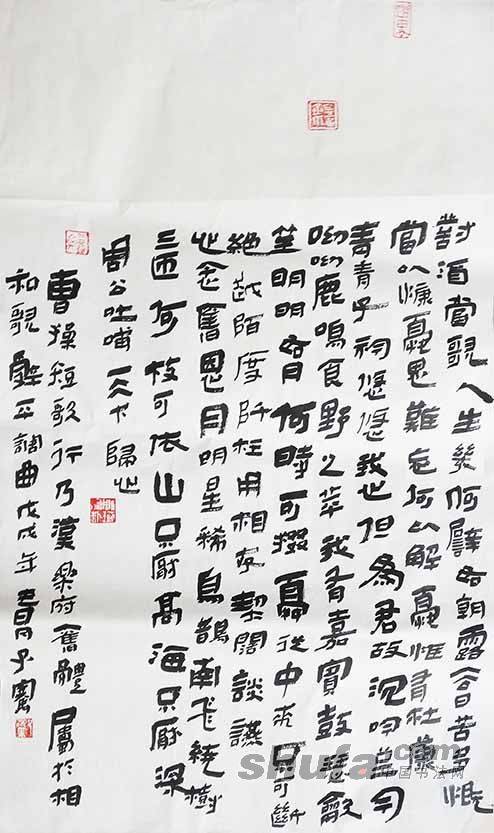 對酒當歌人生幾何譬如朝露去日苦多慨
當以慷憂思難忘何以解憂惟有杜康
青青子衿悠悠我心但為君故沉吟至今
呦呦鹿鳴食野之苹我有嘉賓鼓瑟吹
笙明明如月何時可掇憂從中來不可斷
絕越陌度阡枉用相存契闊談讌
心念舊恩月明星稀烏鵲南飛繞樹
三匝何枝可依山不厭高海不厭深
周公吐哺天下歸心
曹操短歌行乃漢樂府舊體屬於相
和歌辭平調曲戊戌年
shufa.com
中国书法网